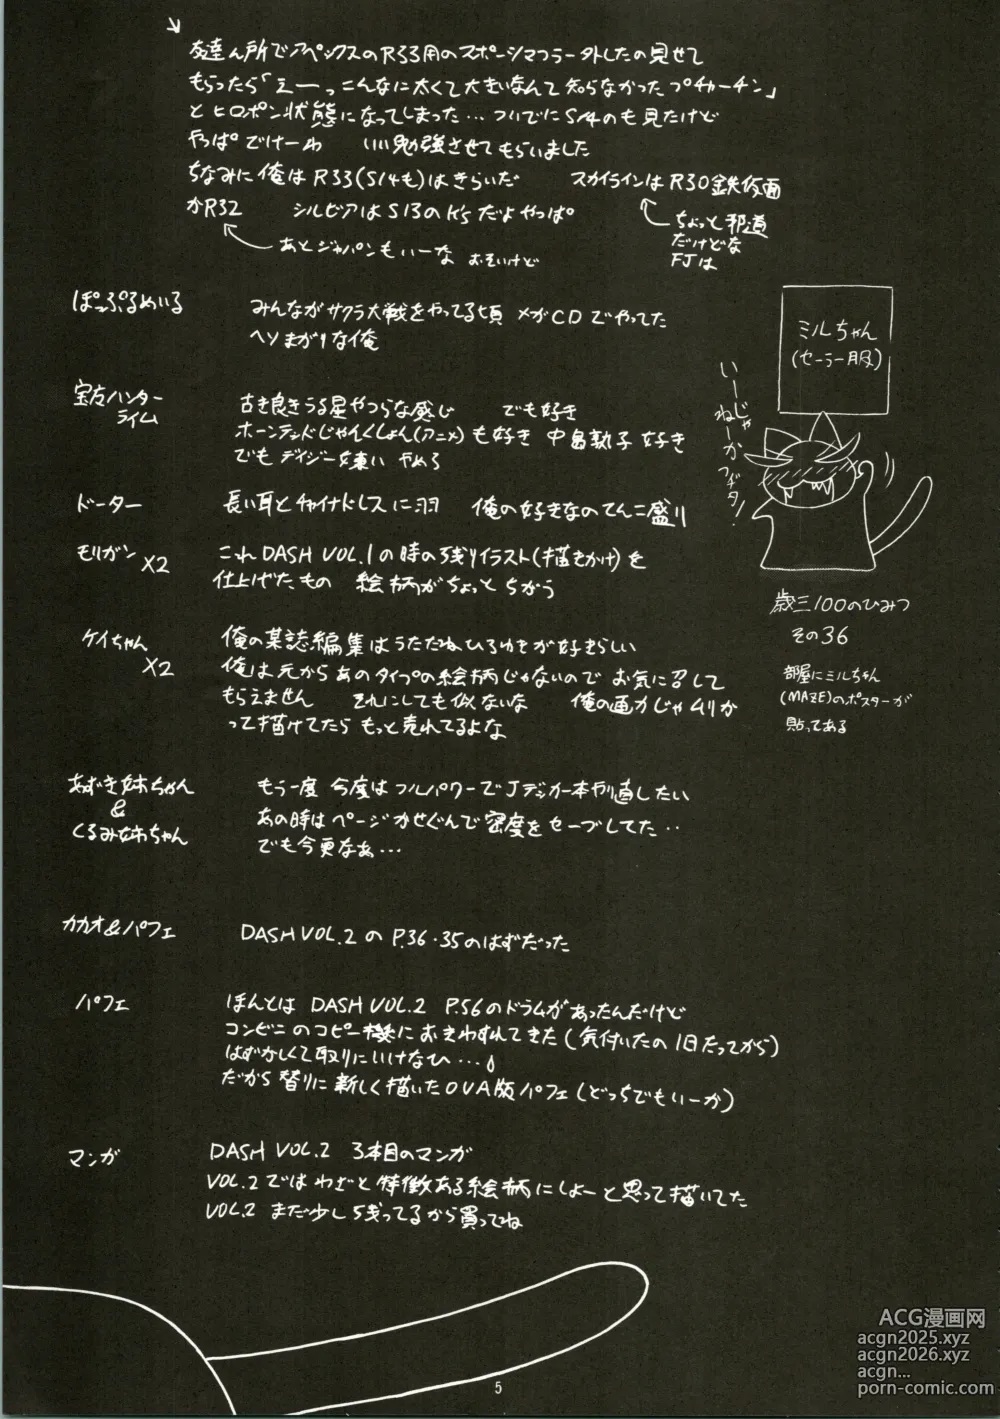 友達ん所でアペックスのR33用のスポーツマフラー外したの見せて
もらったら「えーっこんなに太くて大きいなんて知らなかったプチャーチン」
とヒロポン状態になってしまった…ついでにS14のも見たけど
やっぱでけーわ　いい勉強させてもらいました
ちなみに俺はR33(S14も)はきらいだ　スカイラインはR30鉄仮面
かR32　シルビアはS13のK'sだよやっぱ
ちょっと邪道
だけどな
FJは
あとジャパンもいーな おそいけど
ぽっぷるめいる
みんながサクラ大戦をやってる頃 メガCDでやってた
ヘソまがりな俺
宝魔ハンター
ライム
古き良きうる星やつらな感じ　でも好き
ホーンテッドじゃんくしょん(アニメ)も好き 中島敦子 好き
でもデイジー嫌い やめろ
ドーター
長い耳とチャイナドレスに羽　俺の好きなのてんこ盛り
モリガン
X2
これDASH VOL.1の時の残りイラスト(描きかけ)を
仕上げたもの　絵柄がちょっとちがう
ケイちゃん
X2
俺の某誌編集はうたたねひろゆきが好きらしい
俺は元からあのタイプの絵柄じゃないのでお気に召して
もらえません　それにしても似ないな　俺の画力じゃムリか
って描けてたらもっと売れてるよな
あずき姉ちゃん
&
くるみ姉ちゃん
もう一度 今度はフルパワーでJデッカー本列直したい
あの時はページかせぐんで密度をセーブしてた‥
でも今更なぁ…
カカオ&パフェ
DASH VOL.2 の P.36・35のはずだった
パフェ
ほんとは DASH VOL.2 P.56のドラムがあったんだけど
コンビニのコピー機におきわすれてきた(気付いたの1日たってから)
はずかしくて取りにいけなひ…
だから替りに新しく描いたOVA版パフェ(どっちでもいーか)
マンガ
DASH VOL.2 3本目のマンガ
VOL.2ではわざと特徴ある絵柄にしよーと思って描いてた
VOL.2 まだ少し残ってるから買ってね
ミルちゃん
(セーラー服)
いーじゃ
ねーか
フジタ!
歳三100のひみつ
その36
部屋にミルちゃん
(MAZE)のポスターが
貼ってある
5
ACG漫画网
acgn2025.xyz
acgn2026.xyz
acgn...
porn-comic.com